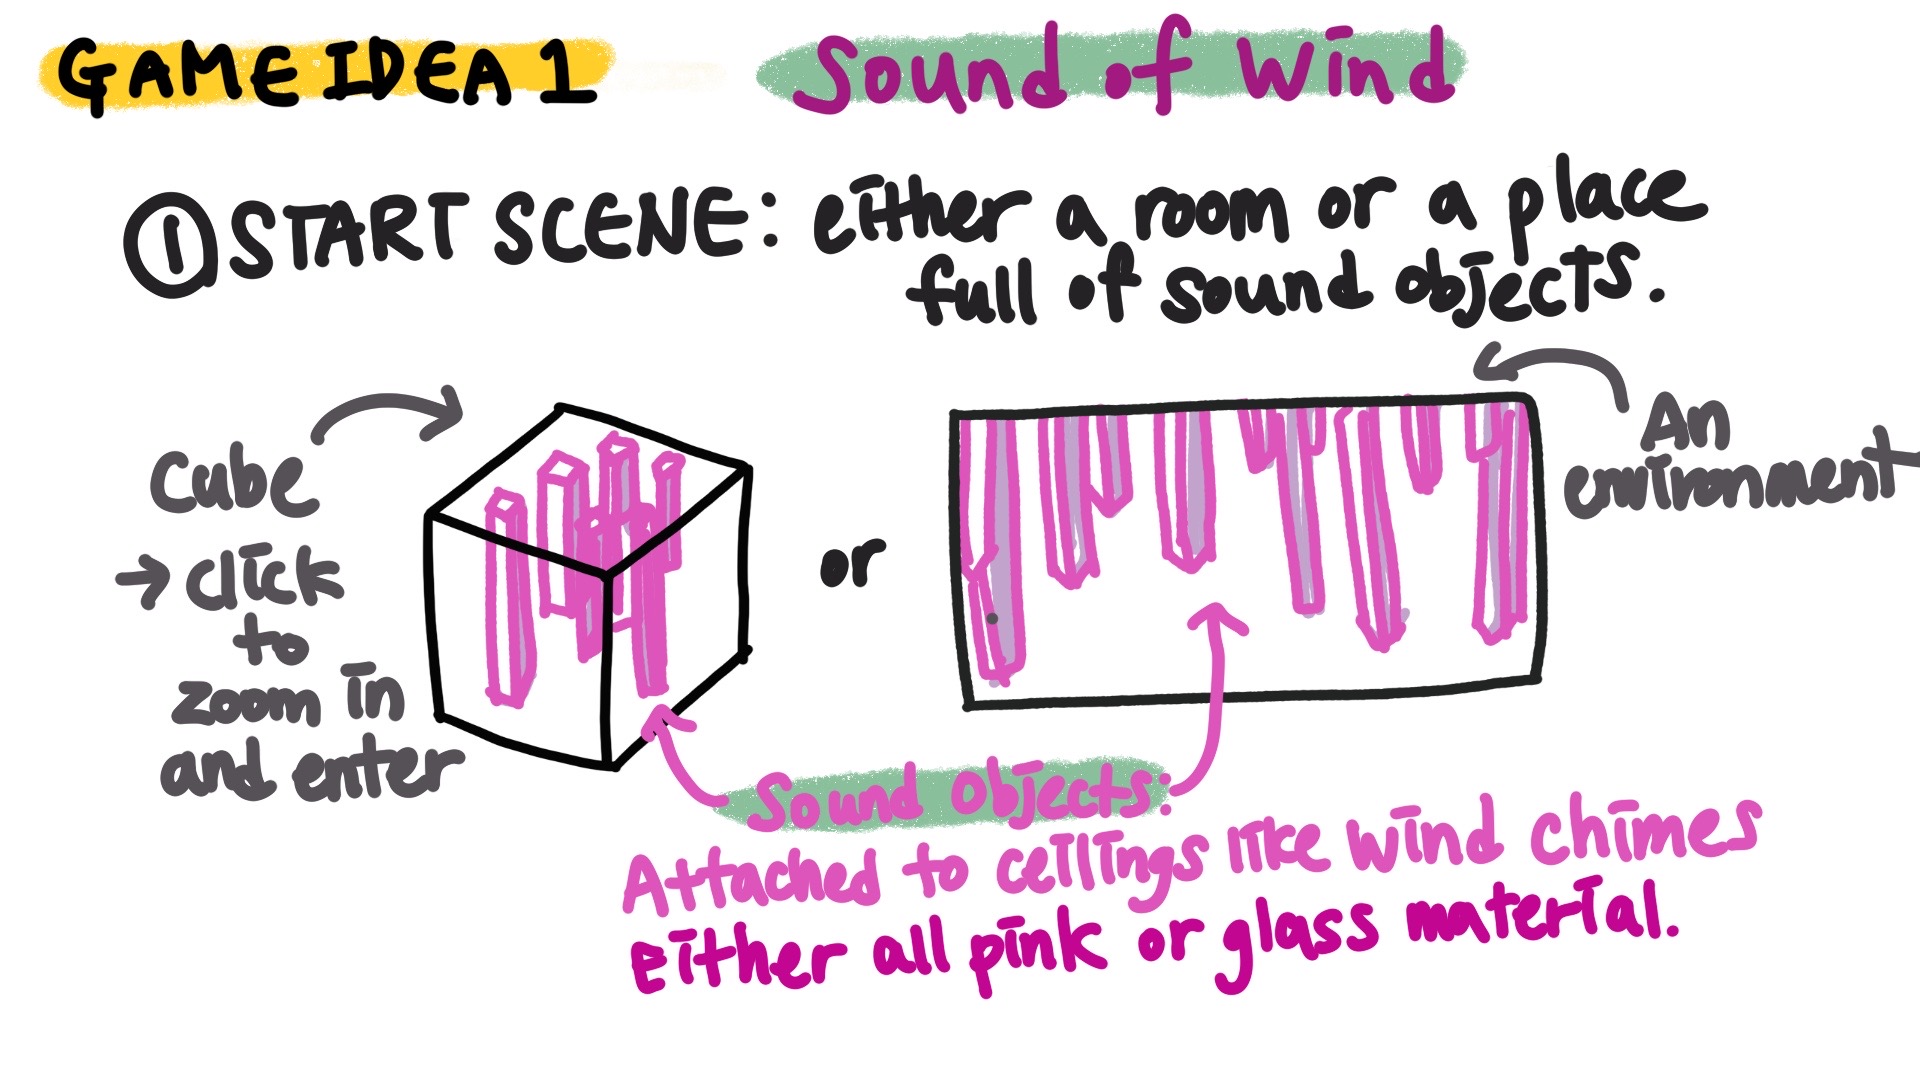 GAME IDEA 1
Sound of Wind
① START SCENE: either a room or a place
full of sound objects.
Cube
→ click
to
zoom in
and enter
or
An
environment
Sound Objects:
Attached to ceilings like wind chimes
Either all pink or glass material.